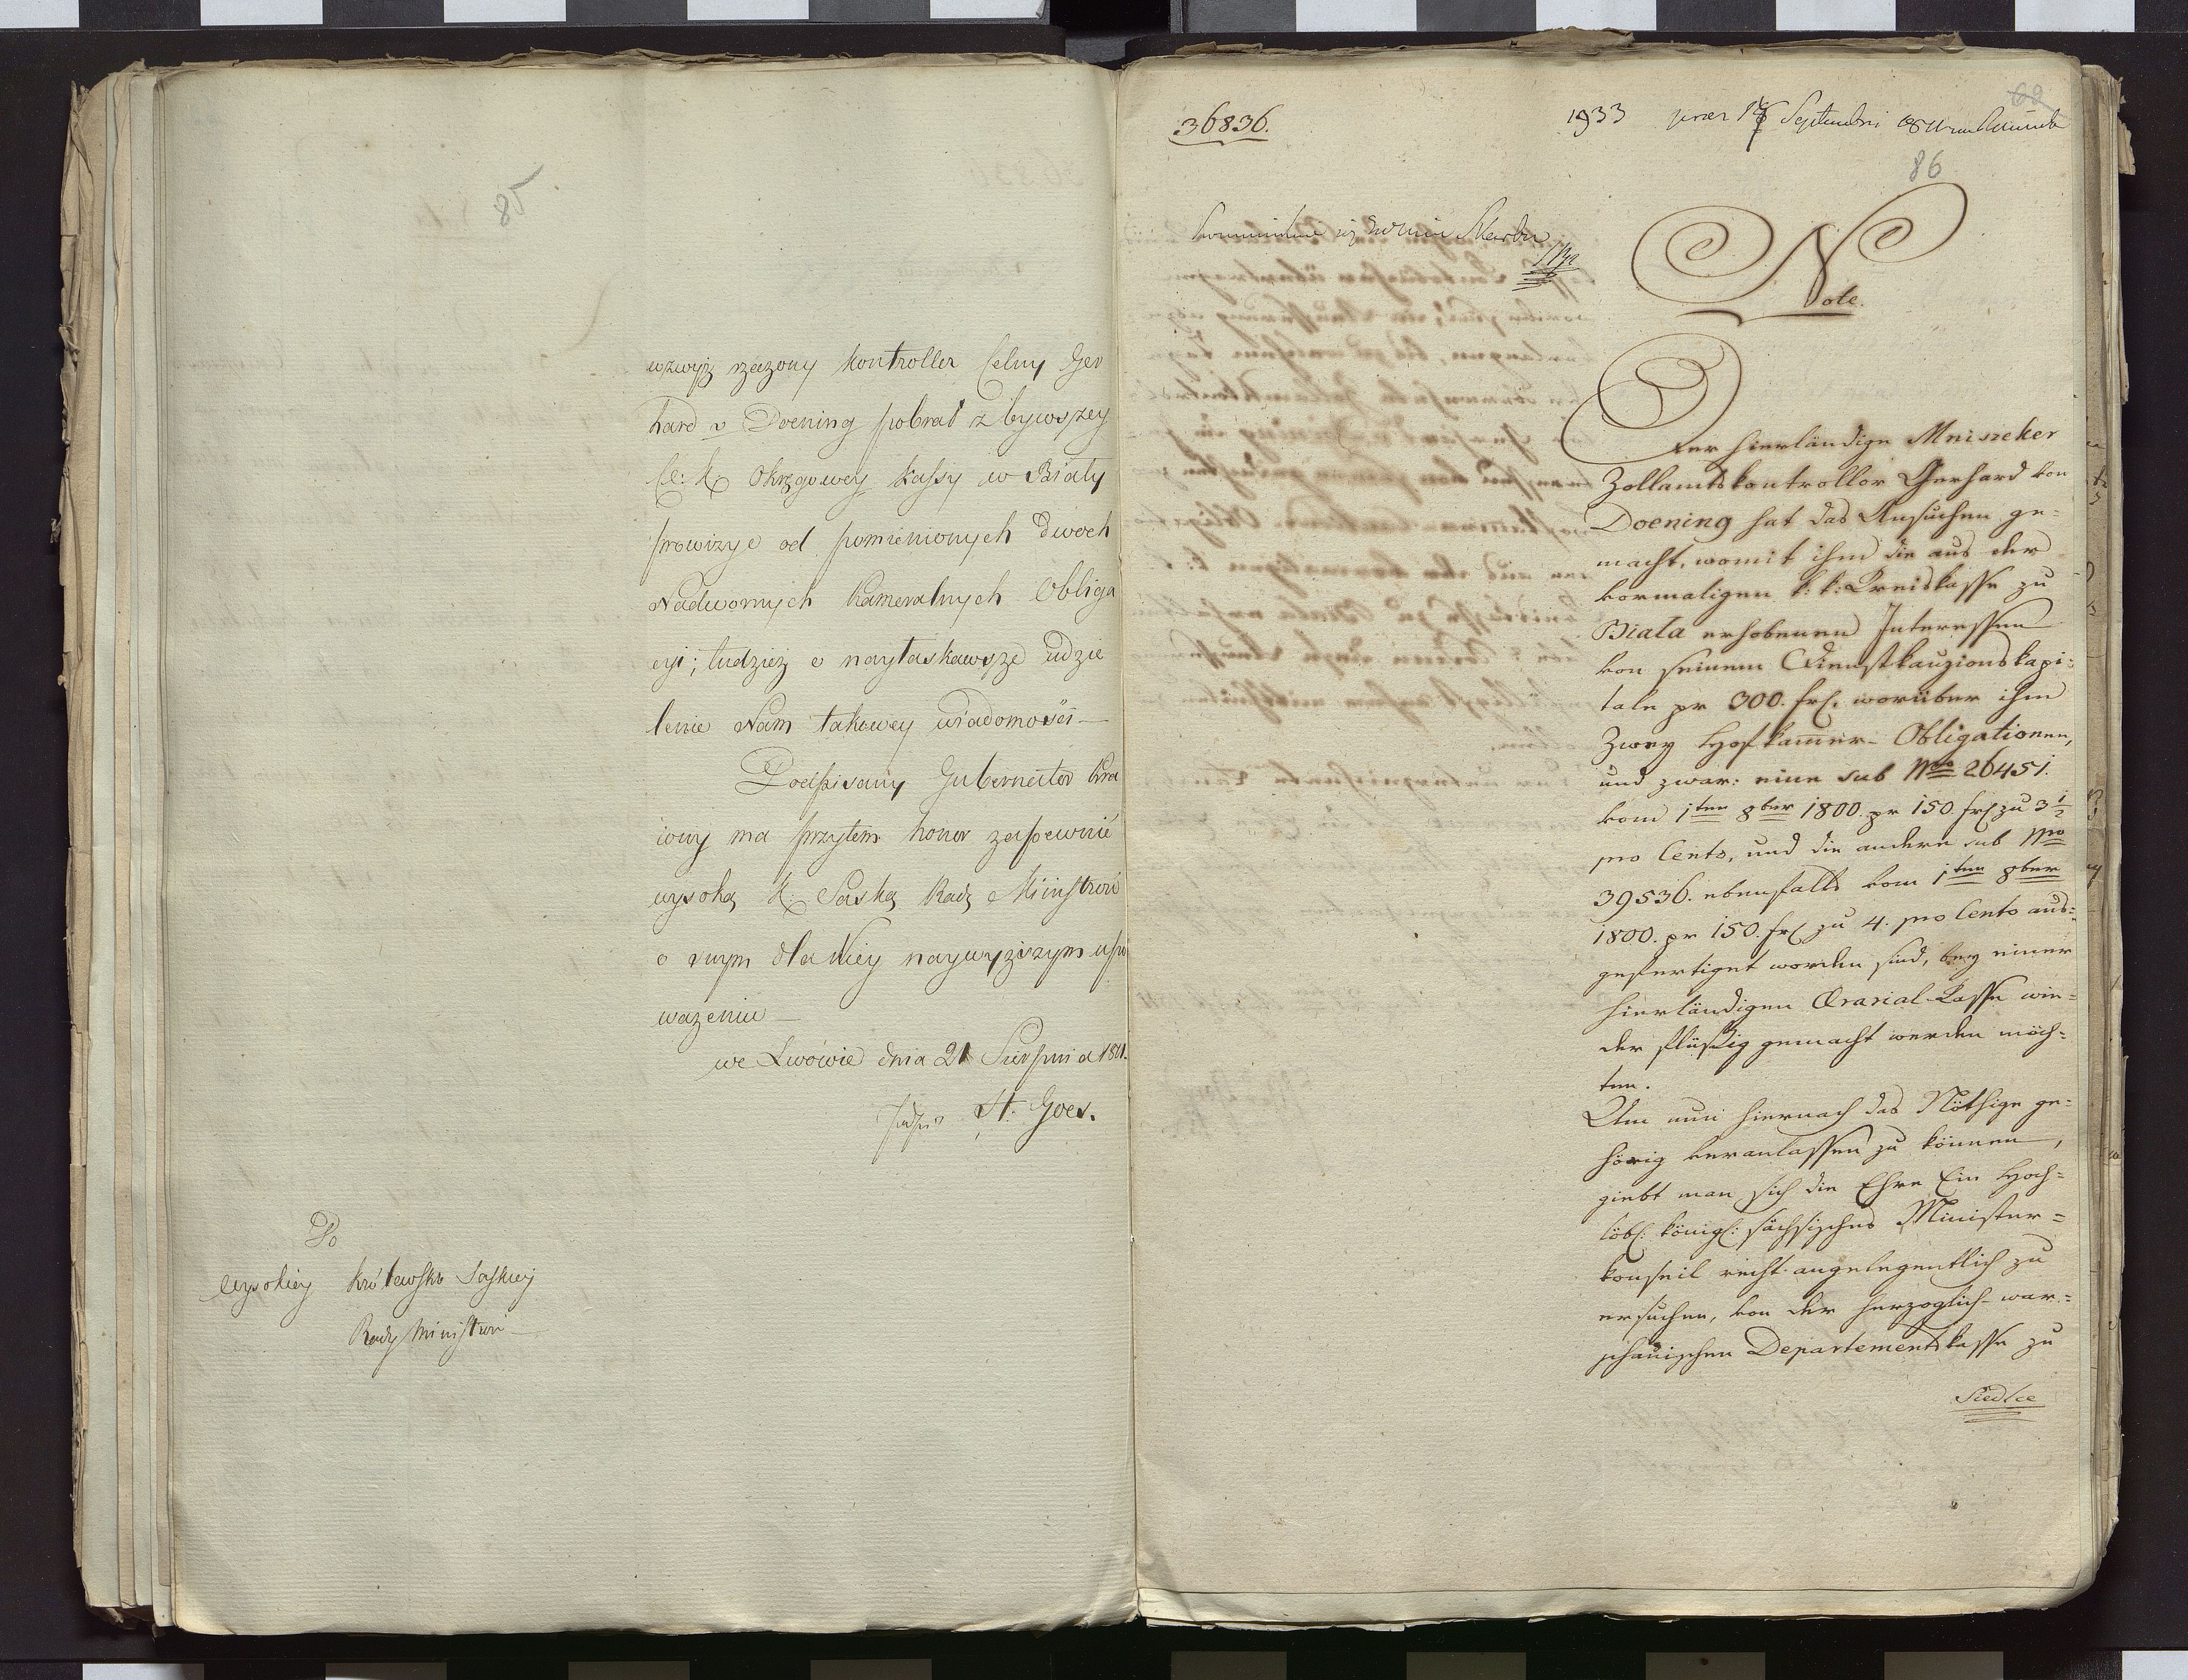 85
wzwyż rzeczony kontroller Celny Ger
hard v Doening pobrał z bywszey
C: K Okręgowey Kassy w Biały
prowizye od pomienionych dwóch
Nadwornych Kameralnych Obliga
cyi; tudzież o nayłaskawsze udzie
lenie Nam takowey wiadomości —
Podpisany Gubernator Kra
iowy ma przytem honor zapewnić
wysoką K: Saską Radę Ministrów
o swym dla Niey naywyższym upo
ważeniu —
we Lwówie dnia 21 Sierpnia 1811.
podpis St. Goes.
Do
wysokiey Królewsko Saskiey
Rady Ministrów —
36836.
1933 præs 16 Septembri
69
86
Skarbu
Note.
Der hierländige Mniszeker
Zollamtskontrollor Gerhard von
Doening hat das Ansuchen ge=
macht, womit ihm die aus der
vormaligen k: k: Kreiskasse zu
Biala erhobenen Interessen
von seinem Dienstkauzionskapi=
tale pr 300. fr, worüber ihm
Zwey Hofkammer-Obligationen,
und zwar: eine sub Nro 26451.
vom 1ten 8ber 1800. pr 150. fr zu 3 1/2
pro Cento, und die andere sub Nro
39536. ebenfalls vom 1ten 8ber
1800. pr 150. fr zu 4. pro Cento aus=
gefertiget worden sind, bey einer
hierländigen Ærarial-Kasse wie=
der flüßig gemacht werden möch=
ten.
Um nun hiernach das Nöthige ge=
hörig veranlassen zu können,
giebt man sich die Ehre Ein Hoch=
löbl: königl: sächsisches Minister=
konseil recht angelegentlich zu
ersuchen, von der herzoglich-war=
schauischen Departementskasse zu
Siedlce